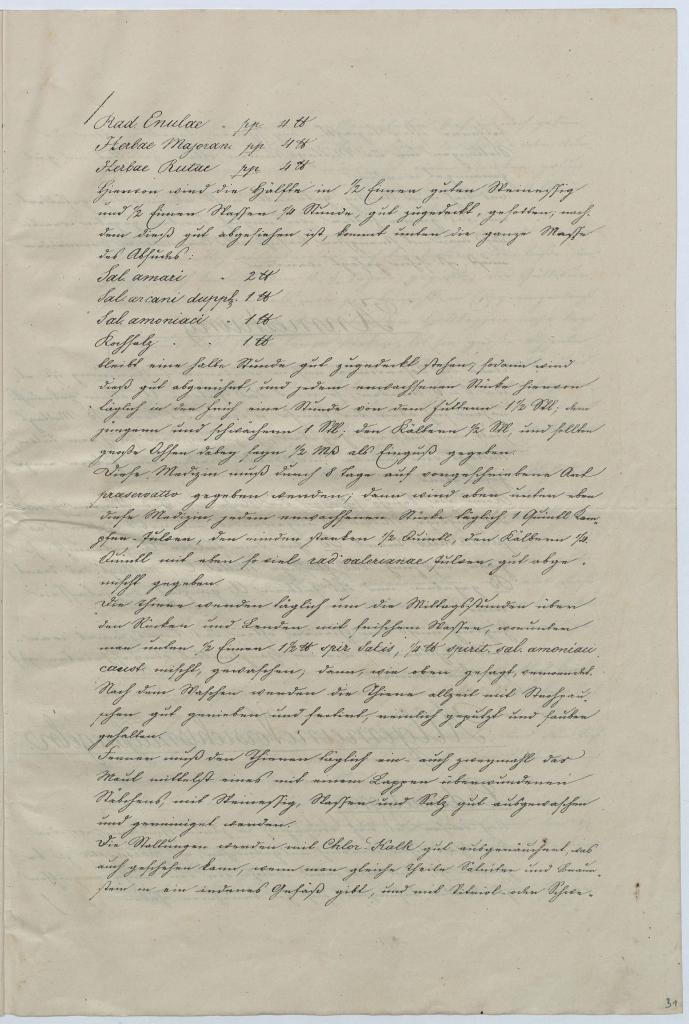 Rad. Enulae " pp. 4 ℔
Herbae Majoran. pp 4 ℔
Herbae Rutae pp 4 ℔
Hiervon wird die Hälfte in ½ Eimer guten Weinessig
und ½ Eimer Wasser, ¼ Stunde, gut zugedeckt, gesotten; nach-
dem dieß gut abgesiehen ist, kommt unter die ganze Masse
des Absudes:
Sal. amari " 2 ℔
Sal. arcani duppl. 1 ℔
Sal. amoniaci " 1 ℔
Kochsalz " " 1 ℔
bleibt eine halbe Stunde gut zugedeckt stehen, sodann wird
dieß gut abgerührt, und jedem erwachsenen Stücke hiervon
täglich in der Früh eine Stunde vor dem Futtern 1½ Stl; dem
jüngern und schwächern 1 Stl; den Kälbern ½ Stl, und sollten
große Ochsen dabey seyn ½ Mß als Einguß gegeben.
Diese Medizin muß durch 8 Tage auf vorgeschriebene Art
praeservativ gegeben werden; dann wird aber unter eben
diese Medizin, jedem erwachsenen Stücke täglich 1 Quintl Kam-
pfer-Pulver, den minder starken ½ Quintl, den Kälbern ¼
Quintl mit eben so viel rad valerianae Pulver, gut abge-
mischt gegeben
Die Thiere werden täglich um die Mittagsstunden über
den Rücken und Lenden mit frischem Wasser, worunter
man unter ½ Eimer 1½ ℔ spir Salis, ¼ ℔ spirit. sal. amoniaci
caust. mischt, gewaschen; dann, wie oben gesagt, verwendet.
Nach dem Waschen werden die Thiere allzeit mit Strohbau-
schen gut gerieben und frotirt, reinlich geputzt und sauber
gehalten.
Ferner muß den Thieren täglich ein- auch zweymahl das
Maul mittelst eines mit einem Lappen überwundenen
Stäbchens, mit Weinessig, Wasser und Salz gut ausgewaschen
und gereiniget werden.
Die Stallungen werden mit Chlor Kalk gut ausgeräuchert, was
auch geschehen kann, wenn man gleiche Theile Salniter und Braun-
stein in ein irdenes Gefäß gibt, und mit Vitriol- oder Schwe-
31